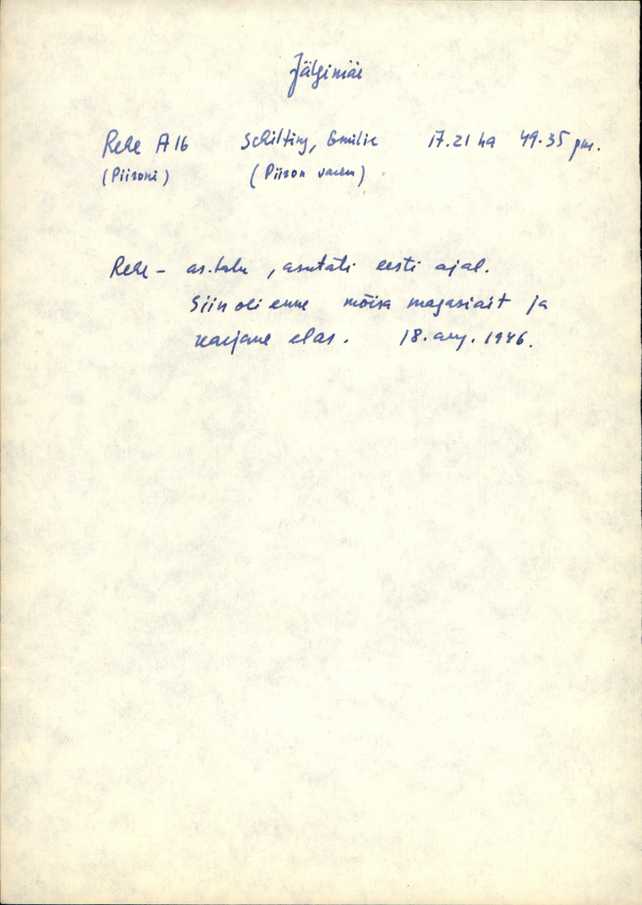 Jälgimäe
Rehe A16 Schilting, Emilie 17.21 ha 49.35 pm.
(Piisoni) (Piison vanem)
Rehe – as.talu, asutati eesti ajal.
Siin oli enne mõisa magasiait ja
karjane elas. 18. aug. 1946.